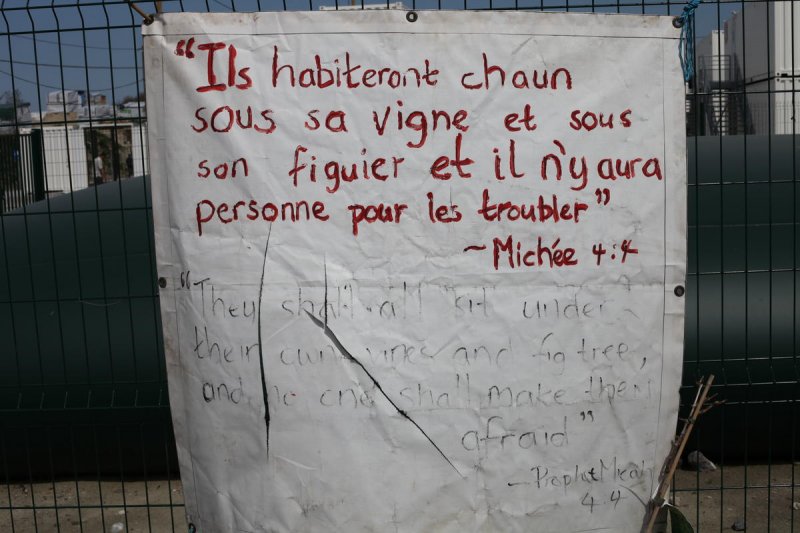 "Ils habiteront chaun
sous sa vigne et sous
son figuier et il n'y aura
personne pour les troubler"
~Michée 4:4
"They shall all sit under
their own vines and fig tree,
and no one shall make them
afraid"
~Prophet Micah
4:4